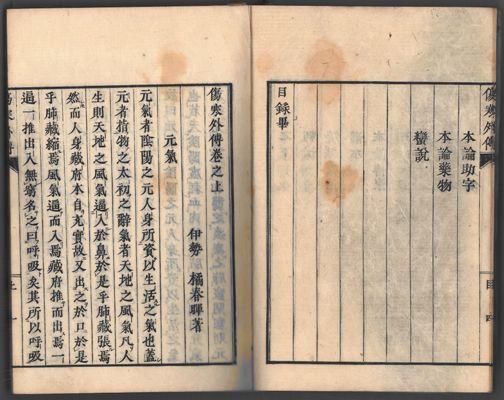 傷寒外傳
本論助字
本論藥物
蠻説
目録畢
目
傷寒外傳卷之上
伊勢 橘春暉著
元氣
元氣者陰陽之元人身所資以生活之氣也蓋
元者指物之太初之辭氣者天地之風氣凡人
生則天地之風氣逼入於鼻於是乎肺藏張焉
然而人身藏府本自充實故又出之於口於是
乎肺藏縮焉風氣逼而入焉藏府推而出焉一
逼一推出入無窮名之曰呼吸矣其所以呼吸